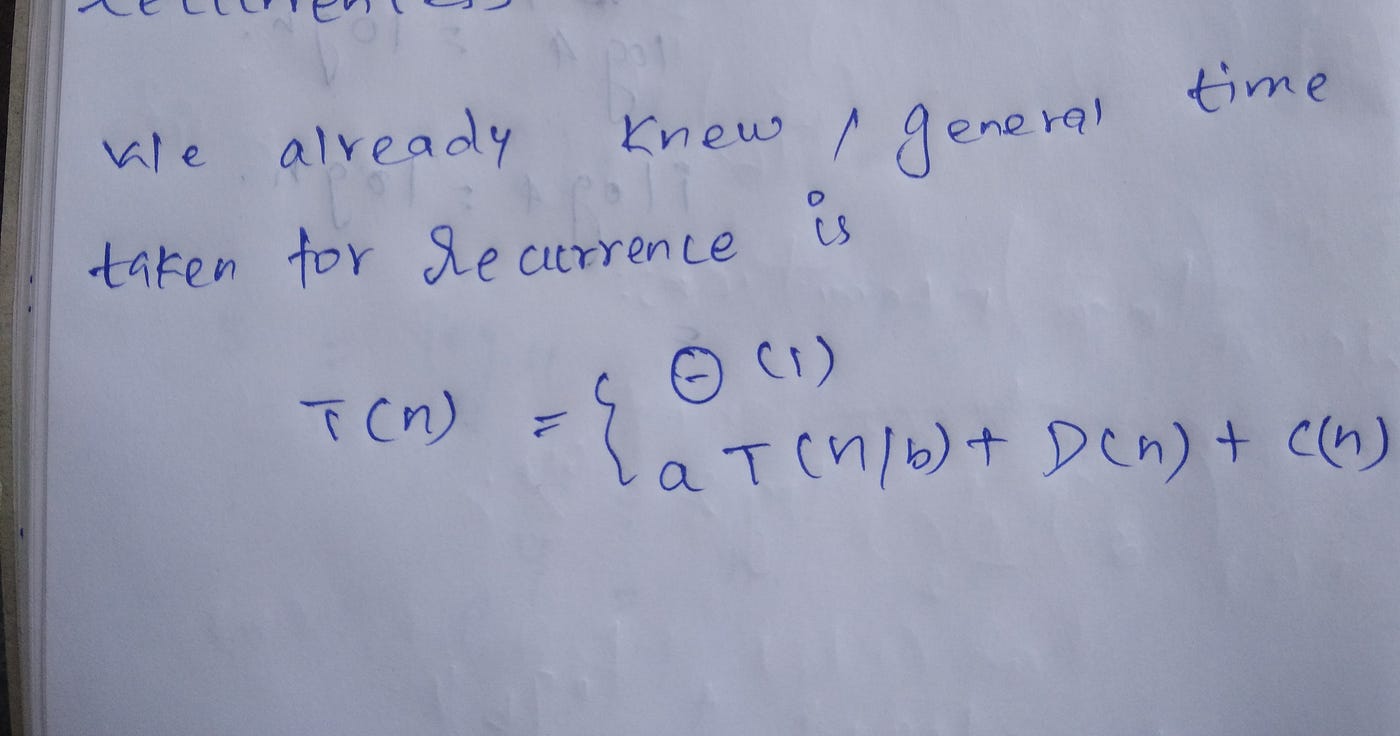 We already knew, general time
taken for Recurrence is
T(n) = { Θ(1)
aT(n/b) + D(n) + C(n)